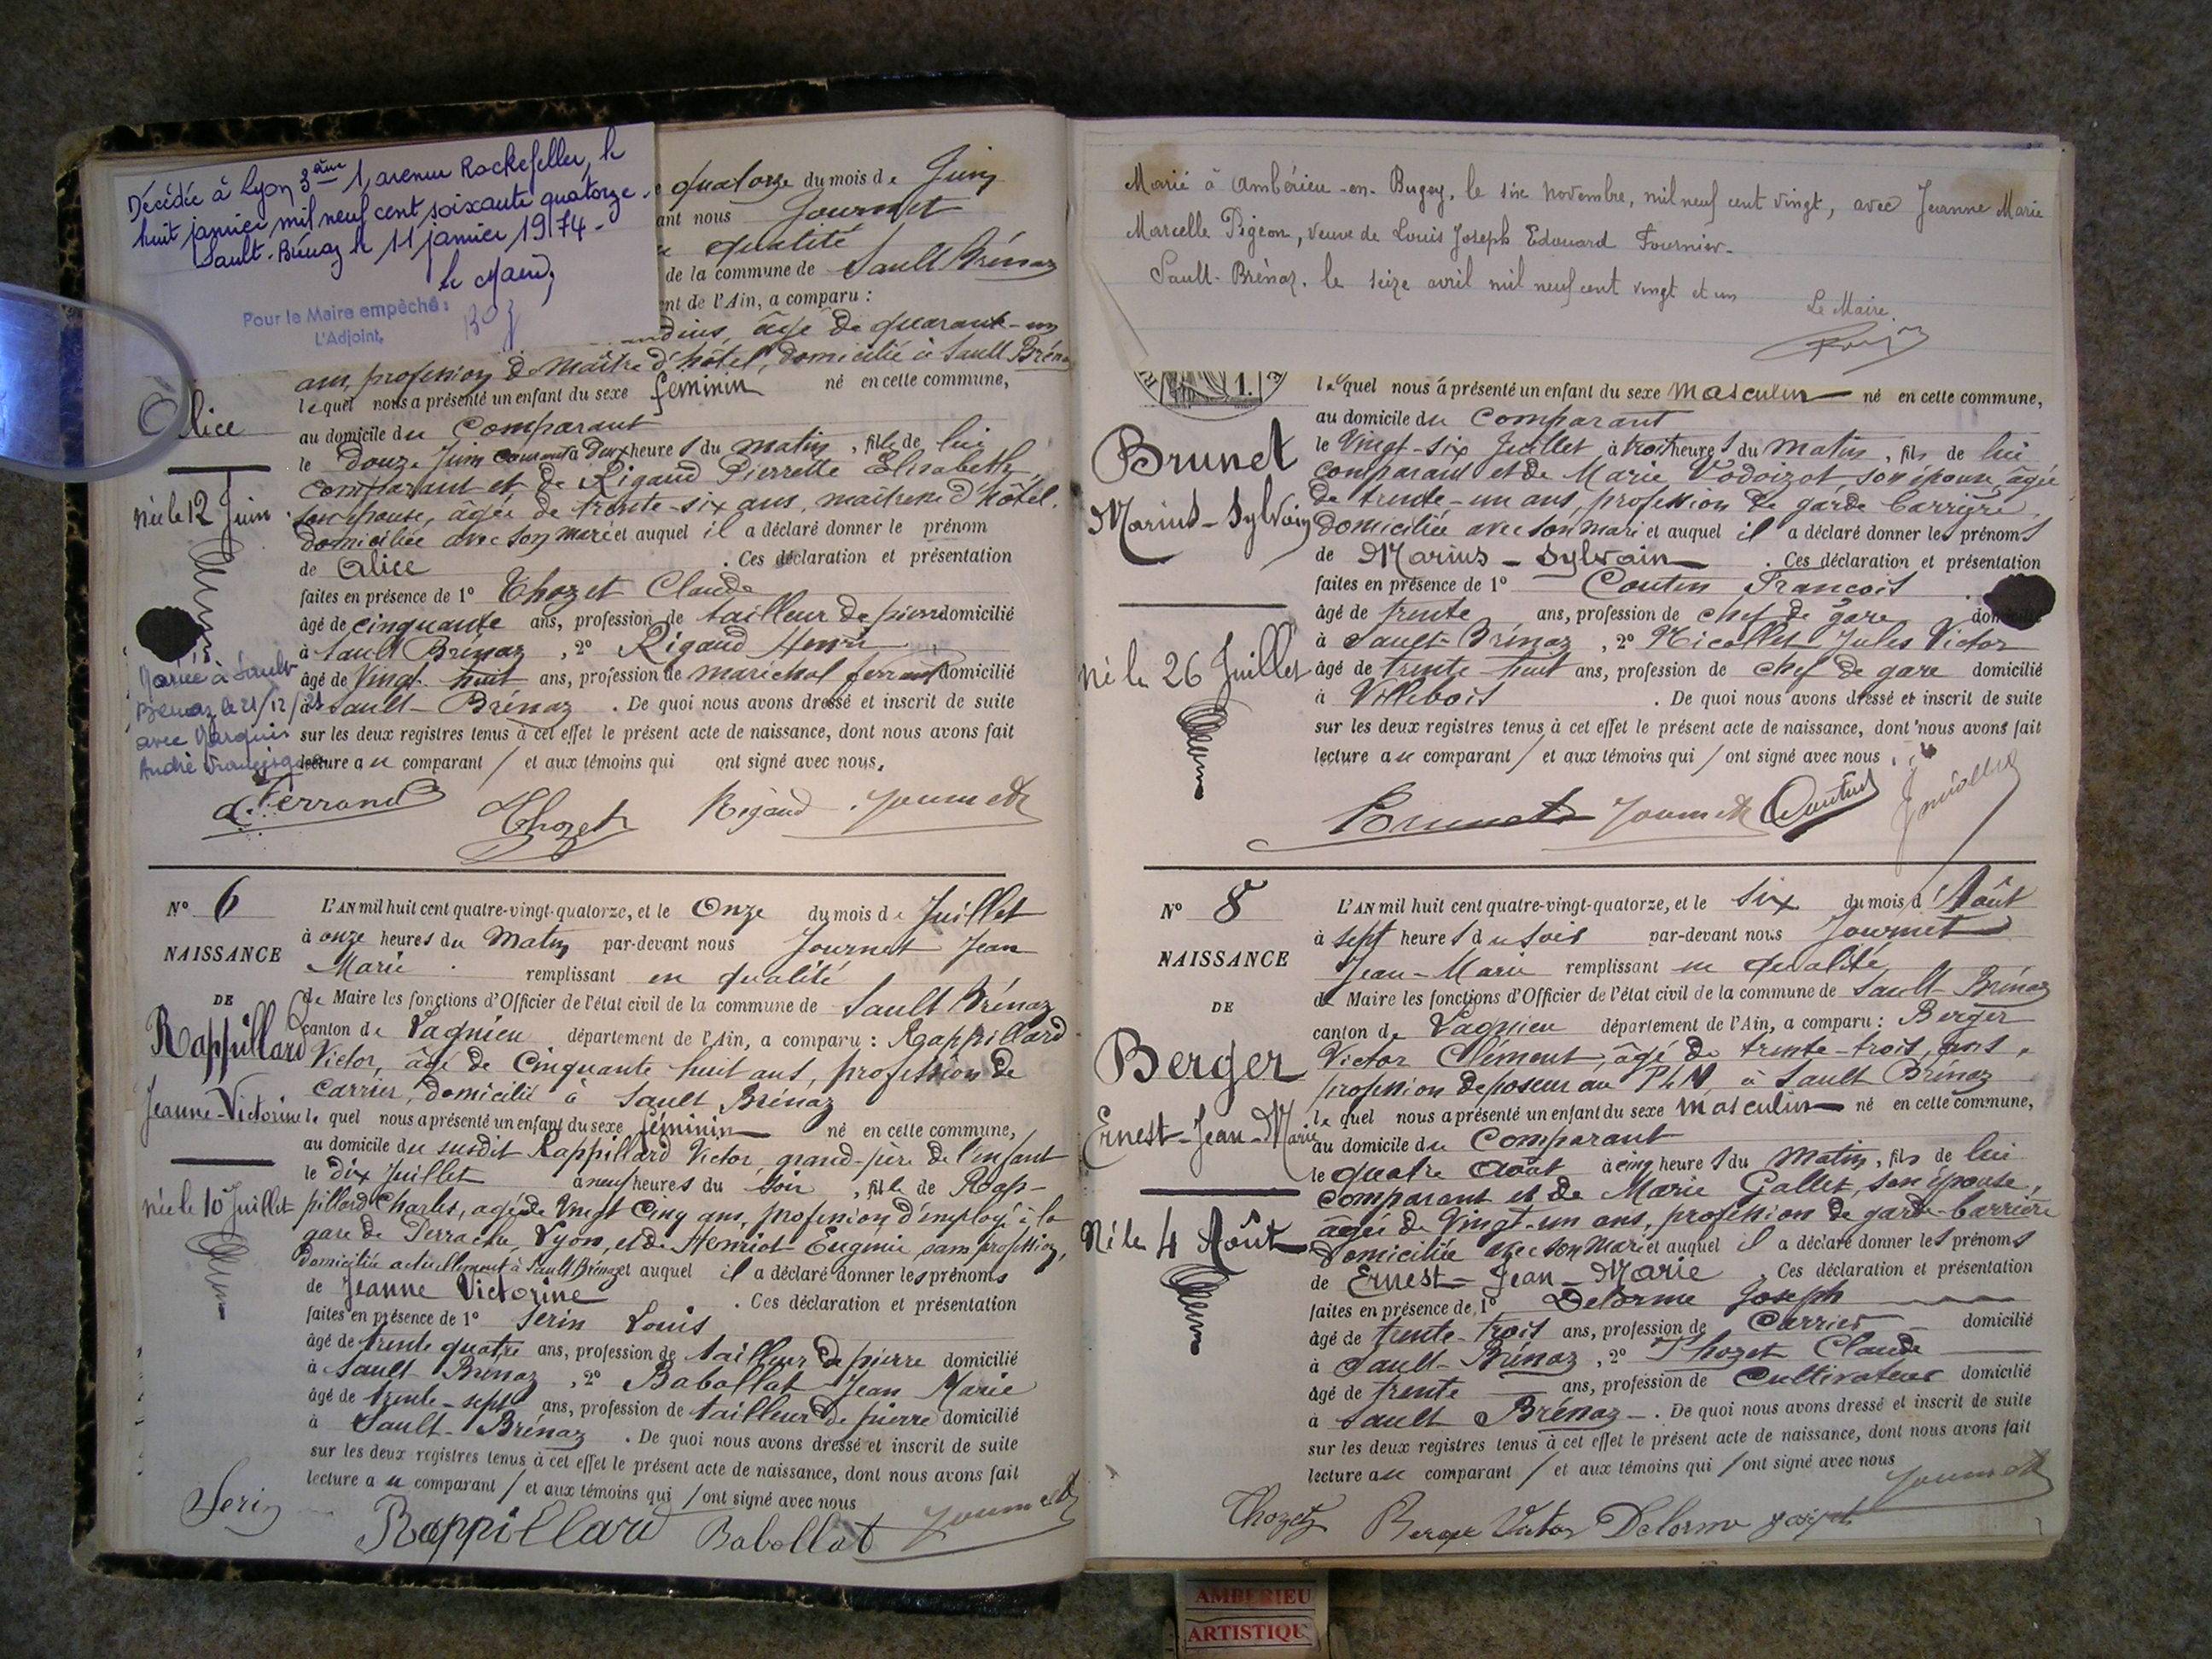 Décédée à Lyon 3ème 1, avenue Rockefeller, le
huit janvier mil neuf cent soixante quatorze.
Sault-Brénaz le 11 janvier 1974.
le Maire,
Pour le Maire empêché :
L'Adjoint,
quatorze du mois de Juin
ant nous Journet
qualité
de la commune de Sault Brénaz
ent de l'Ain, a comparu :
dius, âgé de quarante-un
ans, profession de Maître d'hôtel, domicilié à Sault Bréna
le quel nous a présenté un enfant du sexe féminin né en cette commune,
Alice
au domicile du Comparant
le Douze Juin courant à Deux heures du matin, fille de lui
comparant et de Rigaud Pierrette Elisabeth,
née le 12 Juin
son épouse, âgée de trente-six ans, maîtresse d'hôtel,
domiciliée avec son mari et auquel il a déclaré donner le prénom
de Alice . Ces déclaration et présentation
faites en présence de 1° Thozet Claude
âgé de cinquante ans, profession de tailleur de pierre domicilié
à Sault Brénaz , 2° Rigaud Henri
Mariée à Sault
âgé de Vingt huit ans, profession de maréchal ferrant domicilié
Brénaz le 21/12/
à Sault-Brénaz . De quoi nous avons dressé et inscrit de suite
avec Marquis
sur les deux registres tenus à cet effet le présent acte de naissance, dont nous avons fait
André
lecture au comparant / et aux témoins qui ont signé avec nous.
Ferrand Thozet Rigaud Journet
N° 6 L'AN mil huit cent quatre-vingt-quatorze, et le Onze du mois de Juillet
NAISSANCE à onze heures du Matin par-devant nous Journet Jean
Marie remplissant en qualité
DE
de Maire les fonctions d'Officier de l'état civil de la commune de Sault Brénaz
Rappillard
canton de Lagnieu département de l'Ain, a comparu : Rappillard
Victor, âgé de Cinquante huit ans, profession de
carrier, domicilié à Sault Brénaz
Jeanne-Victorine
le quel nous a présenté un enfant du sexe féminin né en cette commune,
au domicile du susdit Rappillard Victor, grand-père de l'enfant
le dix Juillet à neuf heures du soir , fille de Rap-
née le 10 Juillet
pillard Charles, agé de Vingt Cinq ans, profession d'employé à la
gare de Perrache, Lyon, et de Henriot Eugénie sans profession,
domiciliée actuellement à Sault Brénaz et auquel il a déclaré donner les prénoms
de Jeanne Victorine . Ces déclaration et présentation
faites en présence de 1° Serin Louis
âgé de trente quatre ans, profession de tailleur de pierre domicilié
à Sault-Brénaz , 2° Babollat Jean Marie
âgé de trente-sept ans, profession de tailleur de pierre domicilié
à Sault-Brénaz . De quoi nous avons dressé et inscrit de suite
sur les deux registres tenus à cet effet le présent acte de naissance, dont nous avons fait
lecture au comparant / et aux témoins qui / ont signé avec nous
Serin Rappillard Babollat Journet
Marié à Ambérieu-en-Bugey, le six novembre, mil neuf cent vingt, avec Jeanne Marie
Marcelle Pigeon, veuve de Louis Joseph Edouard Fournier.
Sault-Brénaz, le seize avril mil neuf cent vingt et un
Le Maire.
1.
le quel nous a présenté un enfant du sexe Masculin né en cette commune,
au domicile du Comparant
Brunet
le Vingt-six Juillet à trois heures du Matin, fils de lui
comparant et de Marie Vodoizot, son épouse, âgée
Marius-Sylvain
de trente-un ans, profession de garde barrière,
domiciliée avec son mari et auquel il a déclaré donner les prénoms
de Marius-Sylvain . Ces déclaration et présentation
faites en présence de 1° Coutin François
âgé de trente ans, profession de chef de gare
à Sault-Brénaz , 2° Nicollet Jules Victor
né le 26 Juillet
âgé de trente-huit ans, profession de chef de gare domicilié
à Villebois . De quoi nous avons dressé et inscrit de suite
sur les deux registres tenus à cet effet le présent acte de naissance, dont nous avons fait
lecture au comparant / et aux témoins qui / ont signé avec nous
Brunet Journet Coutin JNicollet
N° 8 L'AN mil huit cent quatre-vingt-quatorze, et le Six du mois d'Août
NAISSANCE à sept heures du soir par-devant nous Journet
Jean-Marie remplissant en qualité
DE
de Maire les fonctions d'Officier de l'état civil de la commune de Sault-Brénaz
canton de Lagnieu département de l'Ain, a comparu : Berger
Berger
Victor Clément, âgé de trente-trois, ans,
profession de poseur au PLM, à Sault Brénaz
Ernest-Jean-Marie
le quel nous a présenté un enfant du sexe masculin né en cette commune,
au domicile du Comparant
le quatre Août à cinq heures du Matin, fils de lui
comparant et de Marie Gallet, son épouse,
Né le 4 Août
âgée de Vingt-un ans, profession de garde-barrière
Domiciliée avec son Mari et auquel il a déclaré donner les prénoms
de Ernest-Jean-Marie . Ces déclaration et présentation
faites en présence de 1° Delorme Joseph
âgé de trente-trois ans, profession de Carrier domicilié
à Sault-Brénaz , 2° Thozet Claude
âgé de trente ans, profession de Cultivateur domicilié
à Sault Brénaz . De quoi nous avons dressé et inscrit de suite
sur les deux registres tenus à cet effet le présent acte de naissance, dont nous avons fait
lecture au comparant / et aux témoins qui / ont signé avec nous
Thozet Berger Victor Delorme Joseph Journet
AMBERIEU
ARTISTIQU